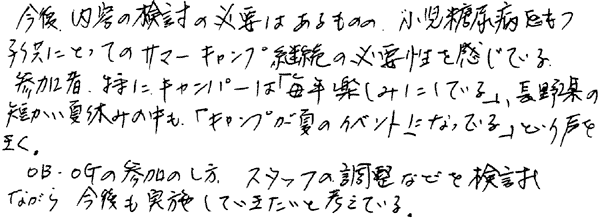 今後、内容の検討の必要はあるものの、小児糖尿病をもつ
子供にとってのサマーキャンプ継続の必要性を感じている。
参加者、特に、キャンパーは「毎年楽しみにしている」、長野県の
短かい夏休みの中も、「キャンプが夏のイベントになっている」という声を
きく。
OB・OGの参加のし方、スタッフの調整などを検討し
ながら 今後も実施していきたいと考えている。